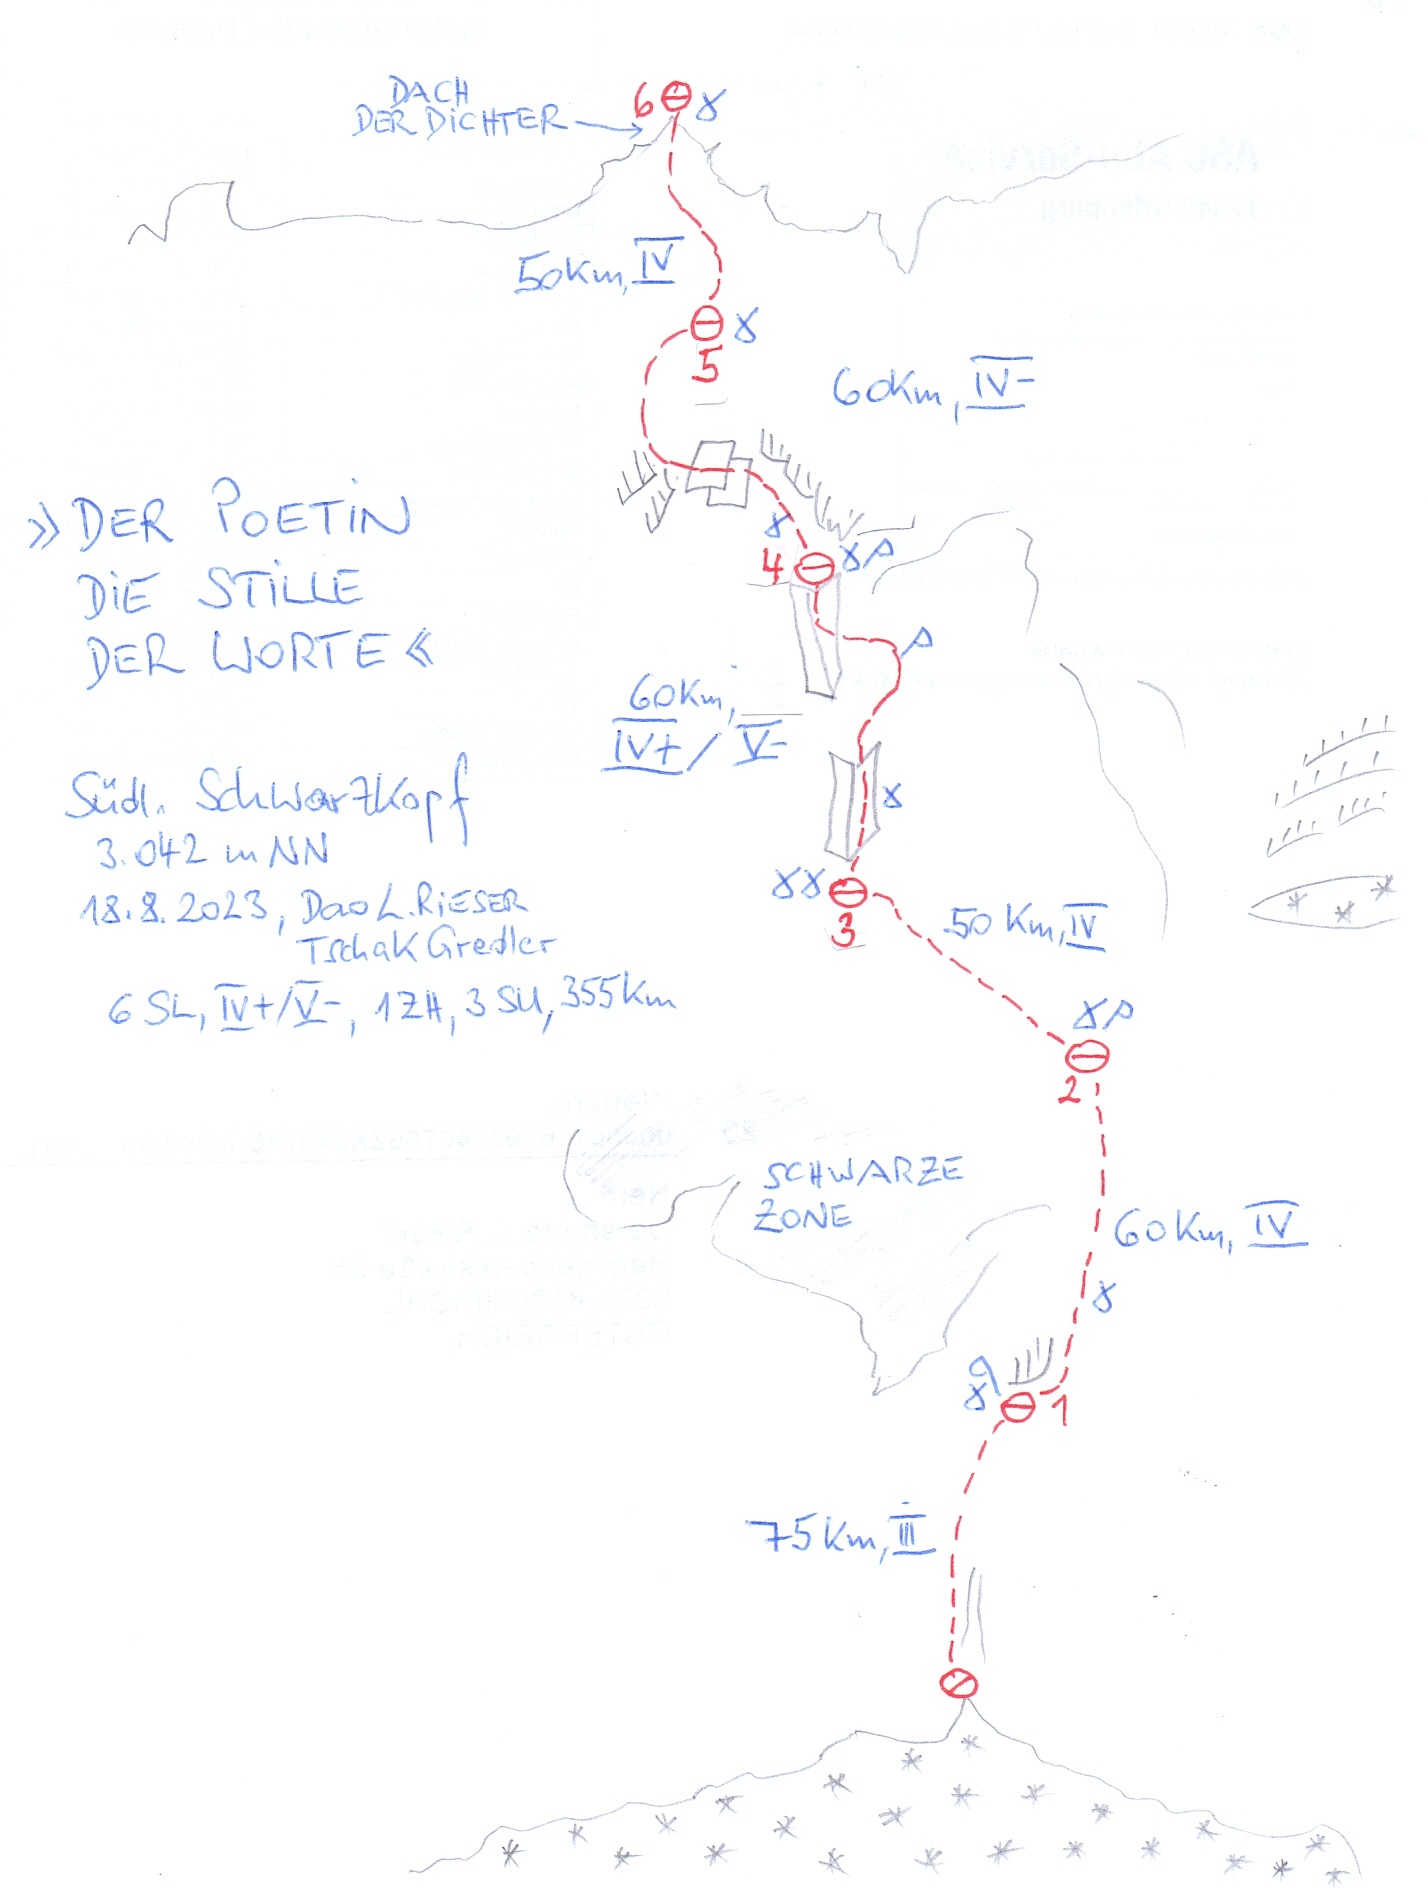 DACH
DER DICHTER
6
50Km, IV
5
60Km, IV-
4
»DER POETIN
DIE STILLE
DER WORTE«
60Km,
IV+/V-
Südl. Schwarzkopf
3.042 m NN
18.8.2023, Dao L. RIESER
Tschak Gredler
6 SL, IV+/V-, 1 ZH, 3 SU, 355Km
3
50 Km, IV
2
SCHWARZE
ZONE
60Km, IV
1
75Km, III